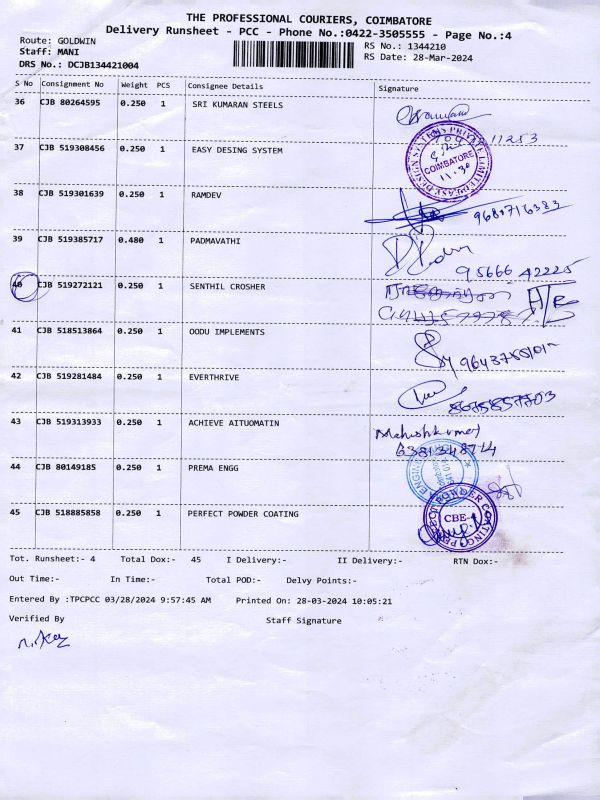 THE PROFESSIONAL COURIERS, COIMBATORE
Delivery Runsheet - PCC - Phone No.:0422-3505555 - Page No.:4
Route: GOLDWIN
RS No.: 1344210
Staff: MANI
RS Date: 28-Mar-2024
DRS No.: DCJB134421004
S No Consignment No Weight PCS Consignee Details Signature
36 CJB 80264595 0.250 1 SRI KUMARAN STEELS
37 CJB 519308456 0.250 1 EASY DESING SYSTEM
COIMBATORE
11.30
38 CJB 519301639 0.250 1 RAMDEV
9680716383
39 CJB 519385717 0.480 1 PADMAVATHI
95666 42225
40 CJB 519272121 0.250 1 SENTHIL CROSHER
41 CJB 518513864 0.250 1 OODU IMPLEMENTS
42 CJB 519281484 0.250 1 EVERTHRIVE
8675857703
43 CJB 519313933 0.250 1 ACHIEVE AITUOMATIN
6381348714
44 CJB 80149185 0.250 1 PREMA ENGG
45 CJB 518885858 0.250 1 PERFECT POWDER COATING
CBE-4
Tot. Runsheet:- 4 Total Dox:- 45 I Delivery:- II Delivery:- RTN Dox:-
Out Time:- In Time:- Total POD:- Delvy Points:-
Entered By :TPCPCC 03/28/2024 9:57:45 AM Printed On: 28-03-2024 10:05:21
Verified By Staff Signature